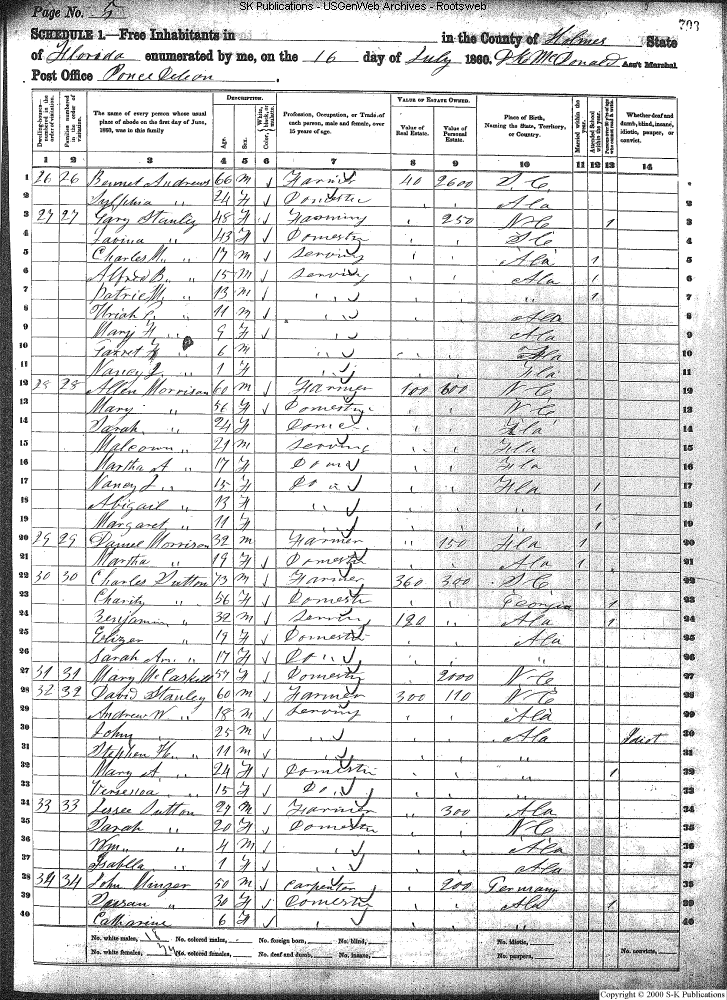 SK Publications - USGenWeb Archives - Rootsweb
Page No. 5
703
SCHEDULE 1.—Free Inhabitants in in the County of Holmes State
of Florida enumerated by me, on the 16 day of July 1860. McDonald Ass't Marshal
Post Office Ponce deleon
Dwelling-houses—numbered in the order of visitation.
Families numbered in the order of visitation.
The name of every person whose usual place of abode on the first day of June, 1860, was in this family
DESCRIPTION.
Age. Sex. Color, White, black, or mulatto.
Profession, Occupation, or Trade of each person, male and female, over 15 years of age.
VALUE OF ESTATE OWNED.
Value of Real Estate. Value of Personal Estate.
Place of Birth, Naming the State, Territory, or Country.
Married within the year.
Attended School within the year.
Whether deaf and dumb, blind, insane, idiotic, pauper, or convict.
1 2 3 4 5 6 7 8 9 10 11 12 13 14
1 26 26 Bennet Andrews 66 m Farmer 40 2600 S C
2 " 24 F Domestic Ala 2
3 27 27 Gary Stanley 48 Farming 250 N C 1 3
4 " 43 F Domestic S C 4
5 Charles M. " 17 m Serving Ala 1 5
6 Alfred B. " 15 m Serving Ala 1 6
7 " 13 m " " 1 7
8 Uriah " 11 m " Ala 8
9 Mary " 9 F " Ala 9
10 6 m " 10
11 Nancy J. " 1 F " 11
12 28 28 Allen Morrison 60 m Farmer 100 600 N C 12
13 Mary " 56 F Domestic N C 13
14 Sarah " 24 F Dome Fla 14
15 " 21 m Serving Fla 15
16 Martha A " 17 F Do Fla 16
17 Nancy J. " 15 F Do Fla 1 17
18 Abigail " 13 F " " 1 18
19 Margaret " 11 F " " 1 19
20 29 29 Daniel Morrison 32 m Farmer " 150 Fla 1 20
21 Martha " 19 F Domestic Ala 1 21
22 30 30 Charles Sutton 73 m Farmer 360 300 S C 22
23 Charity " 56 F Domestic Georgia 1 23
24 Benjamin " 32 m Serving 120 Ala 1 24
25 " 19 F Domestic Ala 25
26 Sarah An. " 17 F Do " " 26
27 31 31 Mary McCaskill 57 F Domestic 2000 N C 27
28 32 32 David Stanley 60 m Farmer 300 110 N C 28
29 Andrew W " 18 m Serving Ala 29
30 John " 25 m " Ala Idiot 30
31 Stephen H. " 11 m " " 31
32 Mary A " 24 F Domestic " 1 32
33 " 15 F Do " 33
34 33 33 Jessee Sutton 27 m Farmer 300 Ala 34
35 Sarah " 20 F Domestic N C 35
36 Wm. " 4 m " Ala 36
37 Isabella " 1 F " Ala 37
38 34 34 John 50 m Carpenter 200 Germany 38
39 " 30 F Domestic Ala 1 39
40 Catharine 6 F " " 40
No. white males, No. colored males, No. foreign born, No. blind, No. idiotic,
No. white females, No. colored females, No. deaf and dumb, No. insane, No. paupers, No. convicts,
Copyright © 2000 S-K Publications